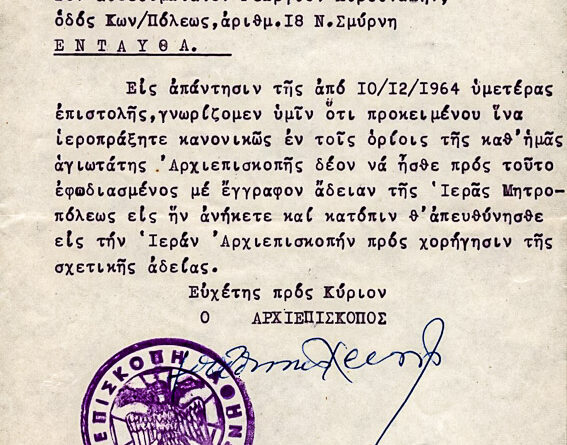 ὁδός Κων/Πόλεως,ἀριθμ.18 Ν.Σμύρνη
ΕΝΤΑΥΘΑ.
Εἰς ἀπάντησιν τῆς ἀπό 10/12/1964 ὑμετέρας
ἐπιστολῆς,γνωρίζομεν ὑμῖν ὅτι προκειμένου ἵνα
ἱεροπράξητε κανονικῶς ἐν τοῖς ὁρίοις τῆς καθ'ἡμᾶς
ἁγιωτάτης Ἀρχιεπισκοπῆς δέον νά ἦσθε πρός τοῦτο
ἐφωδιασμένος μέ ἔγγραφον ἄδειαν τῆς Ἱερᾶς Μητρο-
πόλεως εἰς ἥν ἀνήκετε καί κατόπιν θ'ἀπευθύνησθε
εἰς τήν Ἱεράν Ἀρχιεπισκοπήν πρός χορήγησιν τῆς
σχετικῆς ἀδείας.
Εὐχέτης πρός Κύριον
Ο ΑΡΧΙΕΠΙΣΚΟΠΟΣ
ΕΠΙΣΚΟΠΗ ΑΘΗΝ